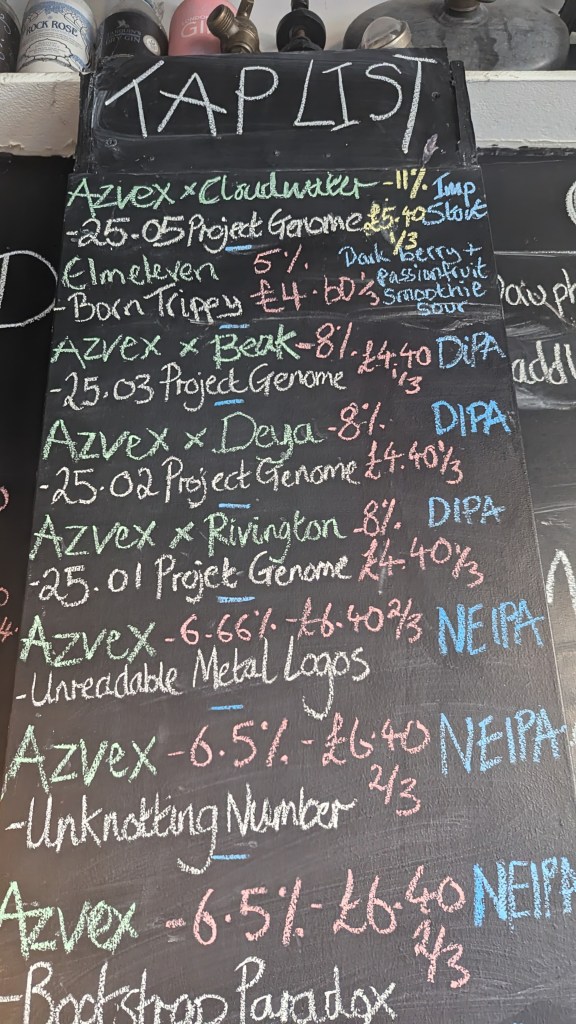 ROCK ROSE
GIN
TAP LIST
Azvex x Cloudwater - 11% Imp
- 25.05 Project Genome £5.40 Stout
1/3
Elmeleven 5% Dark berry +
passionfruit
- Born Trippy £4.60 1/3 Smoothie
sour
Azvex x Beak - 8% £4.40 DiPA
- 25.03 Project Genome 1/3
Azvex x Deya - 8% DIPA
- 25.02 Project Genome £4.40 1/3
Azvex x Rivington - 8% DIPA
- 25.01 Projet Genome £4.40 1/3
Azvex - 6.66% - £6.40 2/3 NEIPA
- Unreadable Metal Logos
Azvex - 6.5% - £6.40 NEIPA
2/3
- Unknotting Number
Azvex - 6.5% - £6.40 NEIPA
2/3
- Bootstrap Paradox